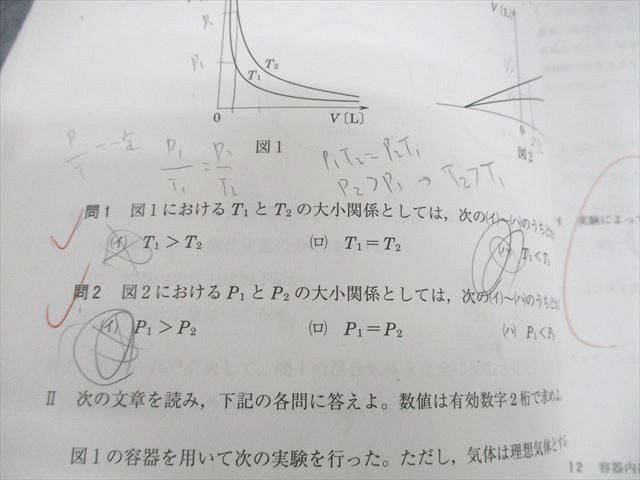 V〔L〕
P₁
T₁
T₂
0
V〔L〕
図1
図2
P₁/T₁ = P₂/T₂
P₁T₂=P₂T₁
P₂>P₁ → T₂>T₁
問1 図1におけるT₁とT₂の大小関係としては，次の(イ)〜(ハ)のうち
(イ) T₁＞T₂ (ロ) T₁＝T₂ (ハ) T₁＜T₂
問2 図2におけるP₁とP₂の大小関係としては，次の(イ)〜(ハ)のうち
(イ) P₁＞P₂ (ロ) P₁＝P₂ (ハ) P₁＜P₂
II 次の文章を読み，下記の各問に答えよ。数値は有効数字2桁で求めよ
図1の容器を用いて次の実験を行った。ただし，気体は理想気体とする
実験によっ
12 容器内